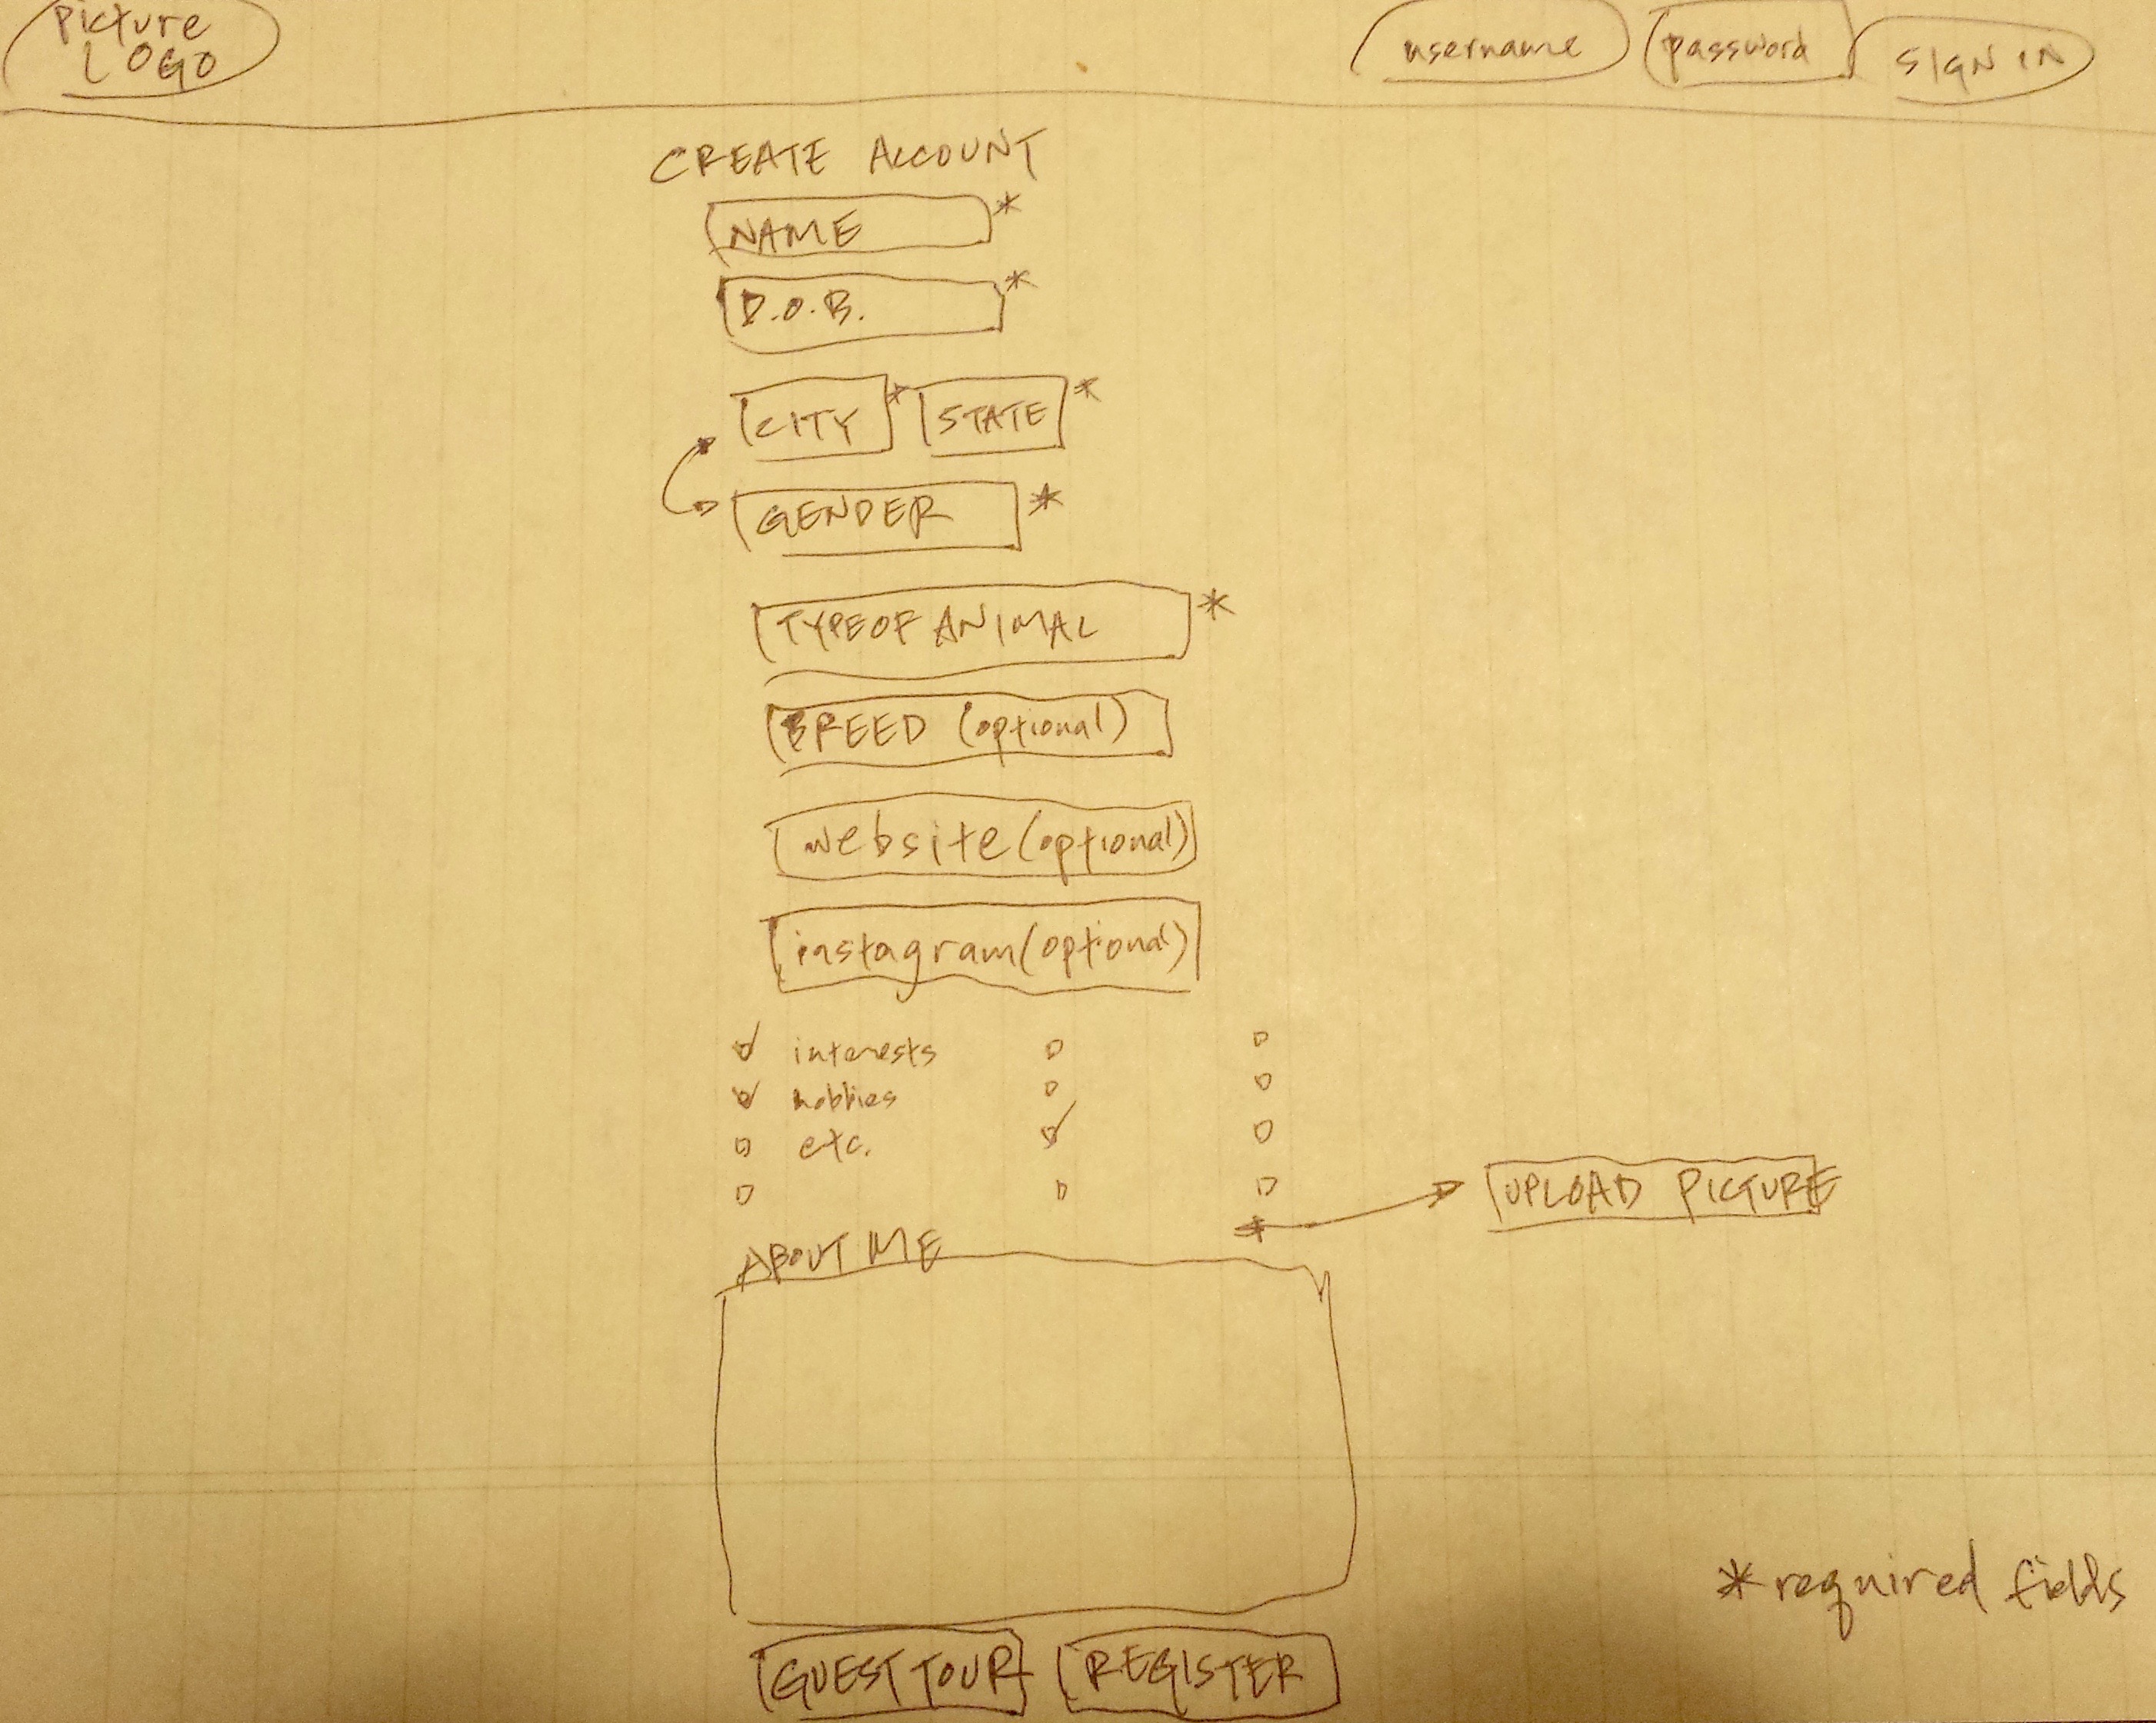 picture
LOGO
username password SIGN IN
CREATE ACCOUNT
NAME *
D.O.B. *
CITY * STATE *
GENDER *
TYPE OF ANIMAL *
BREED (optional)
website (optional)
instagram (optional)
interests
hobbies
etc.
UPLOAD PICTURE
ABOUT ME
* required fields
GUEST TOUR REGISTER